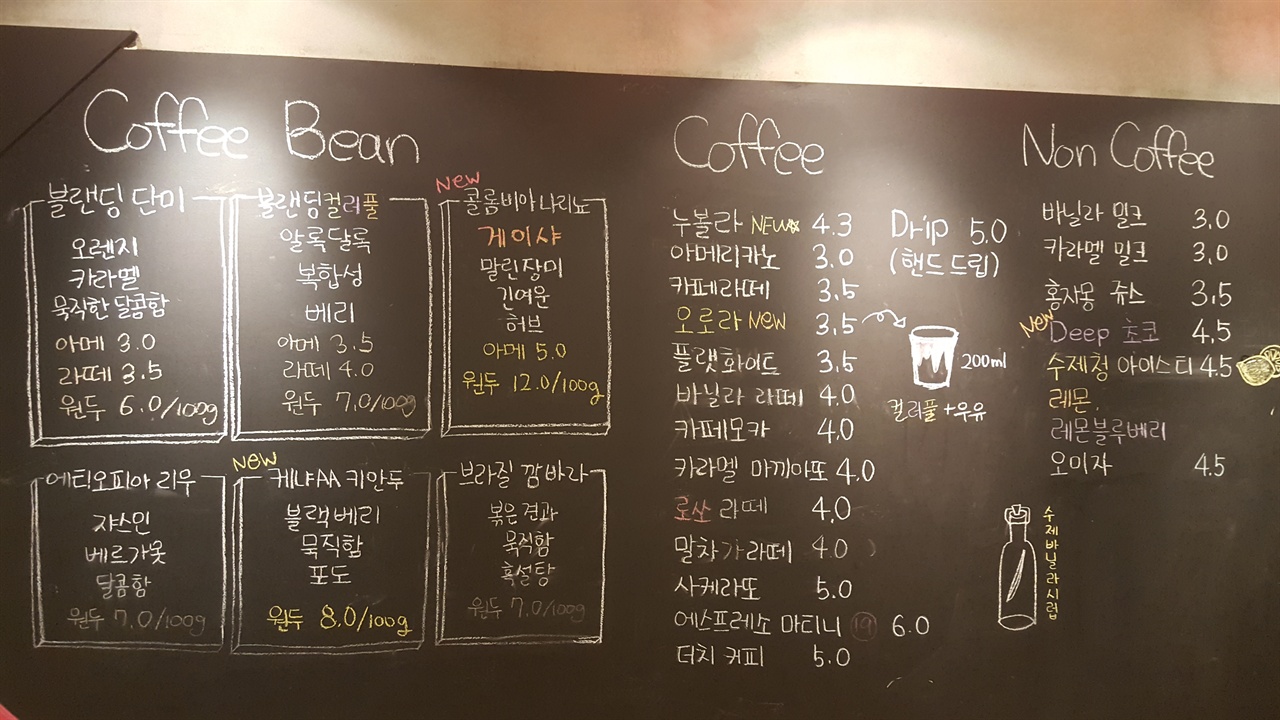 Coffee Bean
블랜딩 단미
오렌지
카라멜
묵직한 달콤함
아메 3.0
라떼 3.5
원두 6.0/100g
블랜딩컬러풀
알록달록
복합성
베리
아메 3.5
라떼 4.0
원두 7.0/100g
New
콜롬비아 나리뇨
게이샤
말린장미
긴여운
허브
아메 5.0
원두 12.0/100g
에티오피아 리무
쟈스민
베르가못
달콤함
원두 7.0/100g
NEW
케냐AA 키안두
블랙베리
묵직함
포도
원두 8.0/100g
브라질 깜바라
볶은견과
묵직함
흑설탕
원두 7.0/100g
Coffee
누볼라 NEW 4.3
아메리카노 3.0
카페라떼 3.5
오로라 NEW 3.5
플랫화이트 3.5
바닐라 라떼 4.0
카페모카 4.0
카라멜 마끼아또 4.0
로쏘 라떼 4.0
말차가라떼 4.0
사케라또 5.0
에스프레소 마티니 19 6.0
더치 커피 5.0
Drip 5.0
(핸드 드립)
200ml
컬러풀+우유
Non Coffee
바닐라 밀크 3.0
카라멜 밀크 3.0
홍자몽 쥬스 3.5
New
Deep 초코 4.5
수제청 아이스티 4.5
레몬,
레몬블루베리
오미자 4.5
수제바닐라시럽